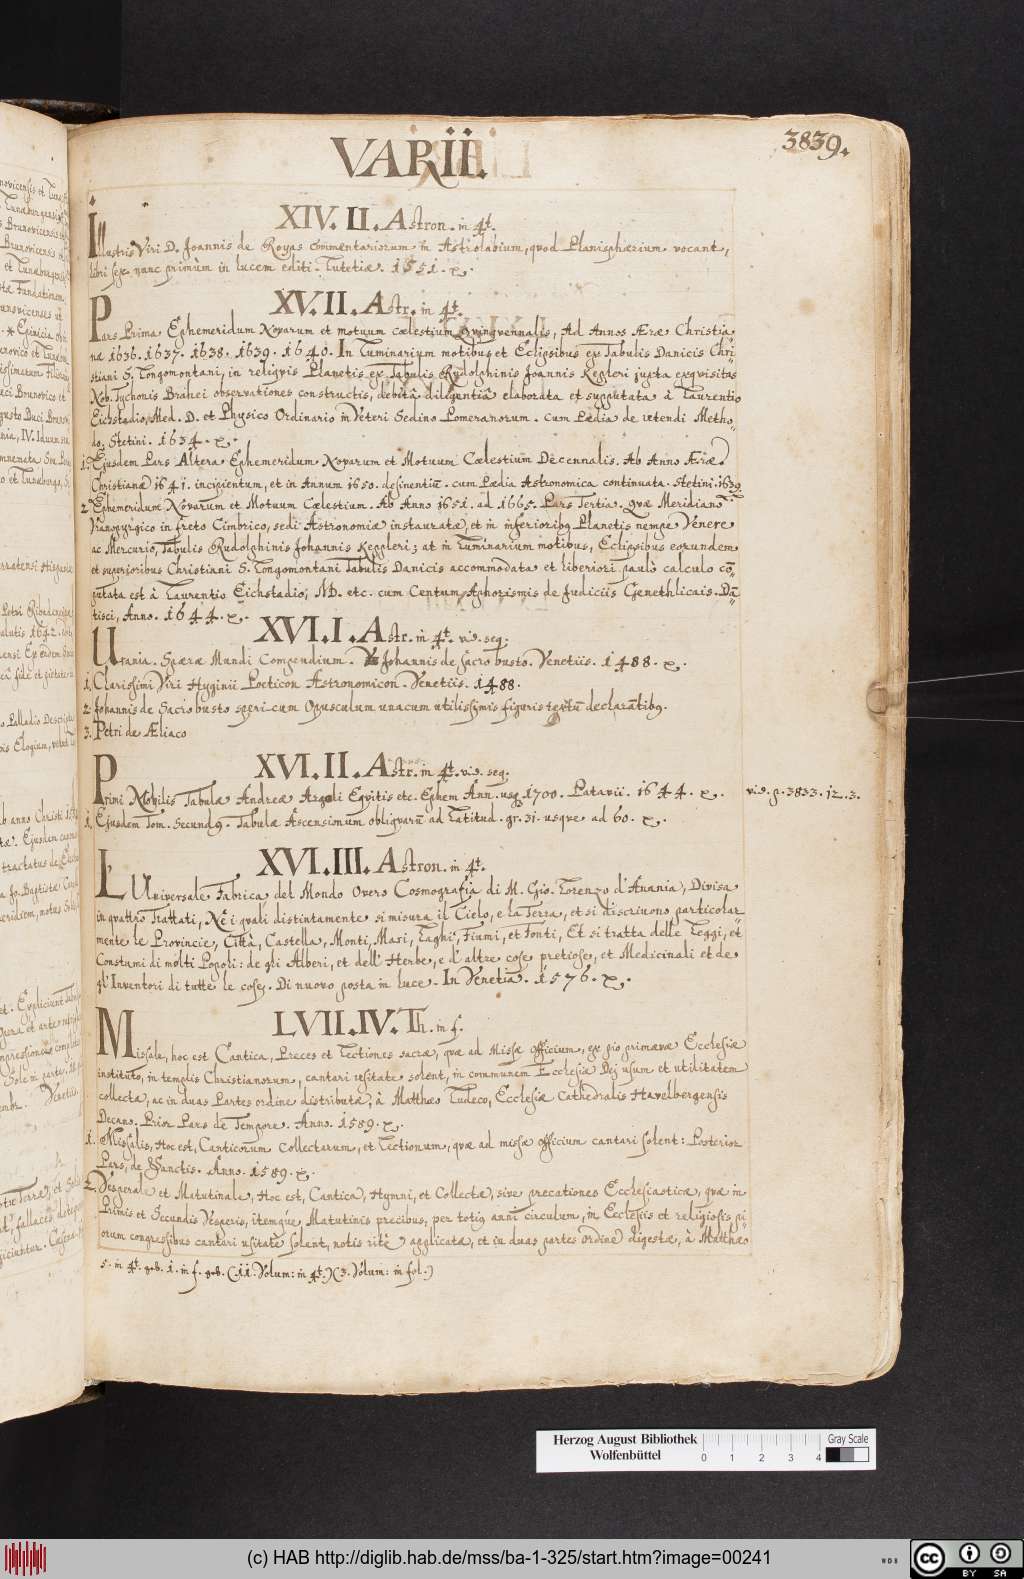 VARII.
3839.
XIV. II. Astron. in 4t.
Illustris Viri D. Joannis de Royas commentariorum in Astrolabium, quod Planisphærium vocant,
libri sex nunc primùm in lucem editi. Lutetiæ. 1551.
XV. II. Astr. in 4t.
Pars Prima Ephemeridum Novarum et motuum cœlestium Qvinqvennalis, Ad Annos Æræ Christia-
næ 1636. 1637. 1638. 1639. 1640. In Luminarium motibus et Eclipsibus ex Tabulis Danicis Chri-
stiani S. Longomontani, in reliqvis Planetis ex Tabulis Rudolphinis Joannis Kepleri juxta exqvisitas
Nob. Tychonis Brahei observationes constructis, debitâ diligentiâ elaborata et supputata à Laurentio
Eichstadio, Med. D. et Physico Ordinario in Veteri Sedino Pomeranorum. Cum Pædia de utendi Metho-
do. Stetini. 1634.
1. Ejusdem Pars Altera Ephemeridum Novarum et Motuum Cœlestium Decennalis. Ab Anno Æræ
Christianæ 1641. incipientum, et in Annum 1650. desinentiũ. cum Pædia Astronomica continuata. Stetini. 1639.
2. Ephemeridum Novarum et Motuum Cœlestium. Ab Anno 1651. ad 1665. Pars Tertia. Qvæ Meridiano
Uranopyrgico in freto Cimbrico, sedi Astronomiæ instauratæ, et in inferioribq Planetis nempe Venere
ac Mercurio, Tabulis Rudolphinis Johannis Keppleri; at in Luminarium motibus, Eclipsibus eorundem
et superioribus Christiani S. Longomontani Tabulis Danicis accommodata et liberiori paulò calculo cõ-
putata est â Laurentio Eichstadio, MD. etc. cum Centum Aphorismis de Judiciis Genethliacis. Dã-
tisci, Anno. 1644.
XVI. I. Astr. in 4t. vid. seq.
Urania. Spæræ Mundi Compendium. Johannis de Sacro busto. Venetiis. 1488.
1. Clarissimi Viri Hyginii Poeticon Astronomicon. Venetiis. 1488.
2. Johannis de Sacro busto speri-cum Opusculum unacum utilissimis figuris textũ declarãtibq.
3. Petri de Æliaco
XVI. II. Astr. in 4t. vid. seq.
Primi Mobilis Tabulæ Andreæ Argoli Eqvitis etc. Ephem Ann. usq 1700. Patavii. 1644. vid. p. 3833. 12. 3.
1. Ejusdem Tom. Secundq. Tabulæ Ascensionum obliqvarũ ad Latitud. gr. 31. usque ad 60.
XVI. III. Astron. in 4t.
L Universale Fabrica del Mondo Overo Cosmografia di M. Gio. Lorenzo d'Anania, Divisa
in qvattro Trattati, Ne i qvali distintamente si misura il Cielo, e la Terra, et si discrivono particolar-
mente le Provincie, Città, Castella, Monti, Mari, Laghi, Fiumi, et Fonti, Et si tratta delle Leggi, et
Costumi di molti Popoli: de gli Alberi, et dell' Herbe, e d'altre cose pretiose, et Medicinali et de
gl' Inventori di tutte le cose. Di nuovo posta in luce. In Venetia. 1576.
LVII. IV. Th. in f.
Missale, hoc est Cantica, Preces et Lectiones sacræ, qvæ ad Missæ officium, ex pio primævæ Ecclesiæ
instituto, in templis Christianorum, cantari usitate solent, in communem Ecclesiæ Dej usum et utilitatem
collecta, ac in duas Partes ordine distributæ, à Matthæo Ludeco, Ecclesiæ Cathedralis Havelbergensis
Decano. Prior Pars de Tempore. Anno. 1589.
1. Missalis, Hoc est, Canticorum Collectarum, et Lectionum, qvæ ad missæ officium cantari solent: Posterior
Pars, de Sanctis. Anno. 1589.
2. Vesperale et Matutinale, Hoc est, Cantica, Hymni, et Collectæ, sive precationes Ecclesiasticæ, qvæ in
Primis et Secundis Vesperis, itemque Matutinis precibus, per totiq anni circulum, in Ecclesiis et religiosis pi-
orum congressibus cantari usitate solent, notis rite applicatæ, et in duas partes ordine digestæ, à Matthæo
5. in 4t. geb. 1. in f. geb. (11. Volum: in 4t.)(3. Volum: in fol.)
Herzog August Bibliothek
Wolfenbüttel
0 1 2 3 4
Gray Scale
(c) HAB http://diglib.hab.de/mss/ba-1-325/start.htm?image=00241
WDB
cc
BY SA